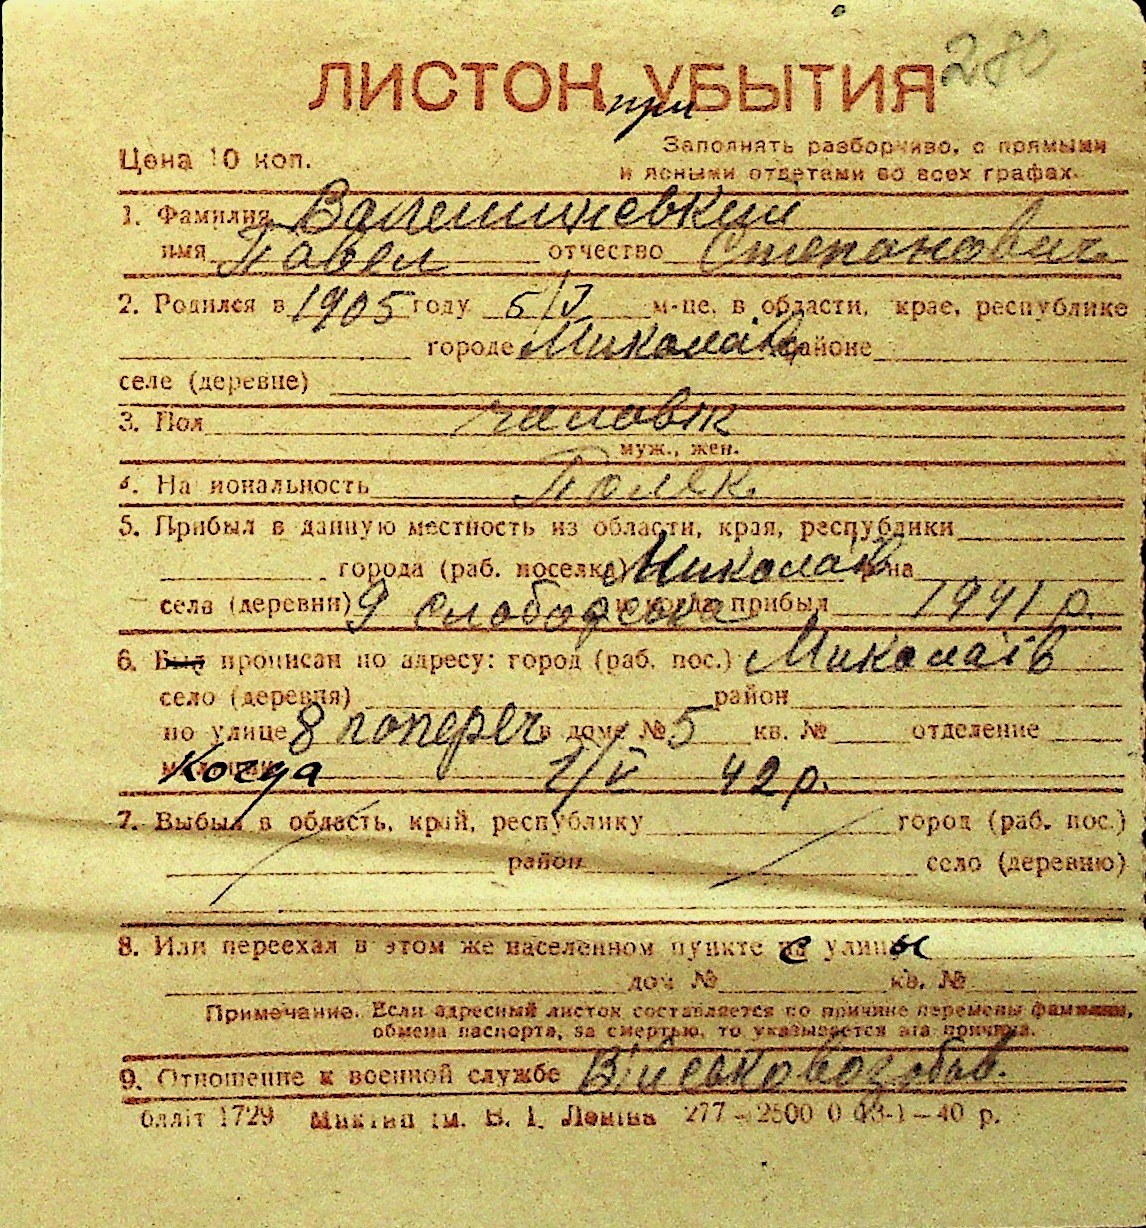 280
ЛИСТОК УБЫТИЯ
при
Цена 10 коп.
Заполнять разборчиво, с прямыми
и ясными ответами во всех графах.
1. Фамилия
имя Павел отчество Степанович
2. Родился в 1905 году 5/V м-це, в области, крае, республике
городе Миколаїв районе
селе (деревне)
3. Пол чоловік
муж., жен.
4. Национальность Поляк.
5. Прибыл в данную местность из области, края, республики
города (раб. поселка) Миколаїв р-на
села (деревни) 9 слободская и когда прибыл 1941 р.
6. Был прописан по адресу: город (раб. пос.) Миколаїв
село (деревня) район
по улице 8 попереч в доме № 5 кв. № отделение
Когда 1/V 42 р.
7. Выбыл в область, край, республику город (раб. пос.)
район село (деревню)
8. Или переехал в этом же населенном пункте с улицы
дом № кв. №
Примечание. Если адресный листок составляется по причине перемены фамилии,
обмена паспорта, за смертью, то указывается эта причина.
9. Отношение к военной службе Військовозобов.
олліт 1729 ім. В. І. Леніна 277 – 2500 0 – 40 р.